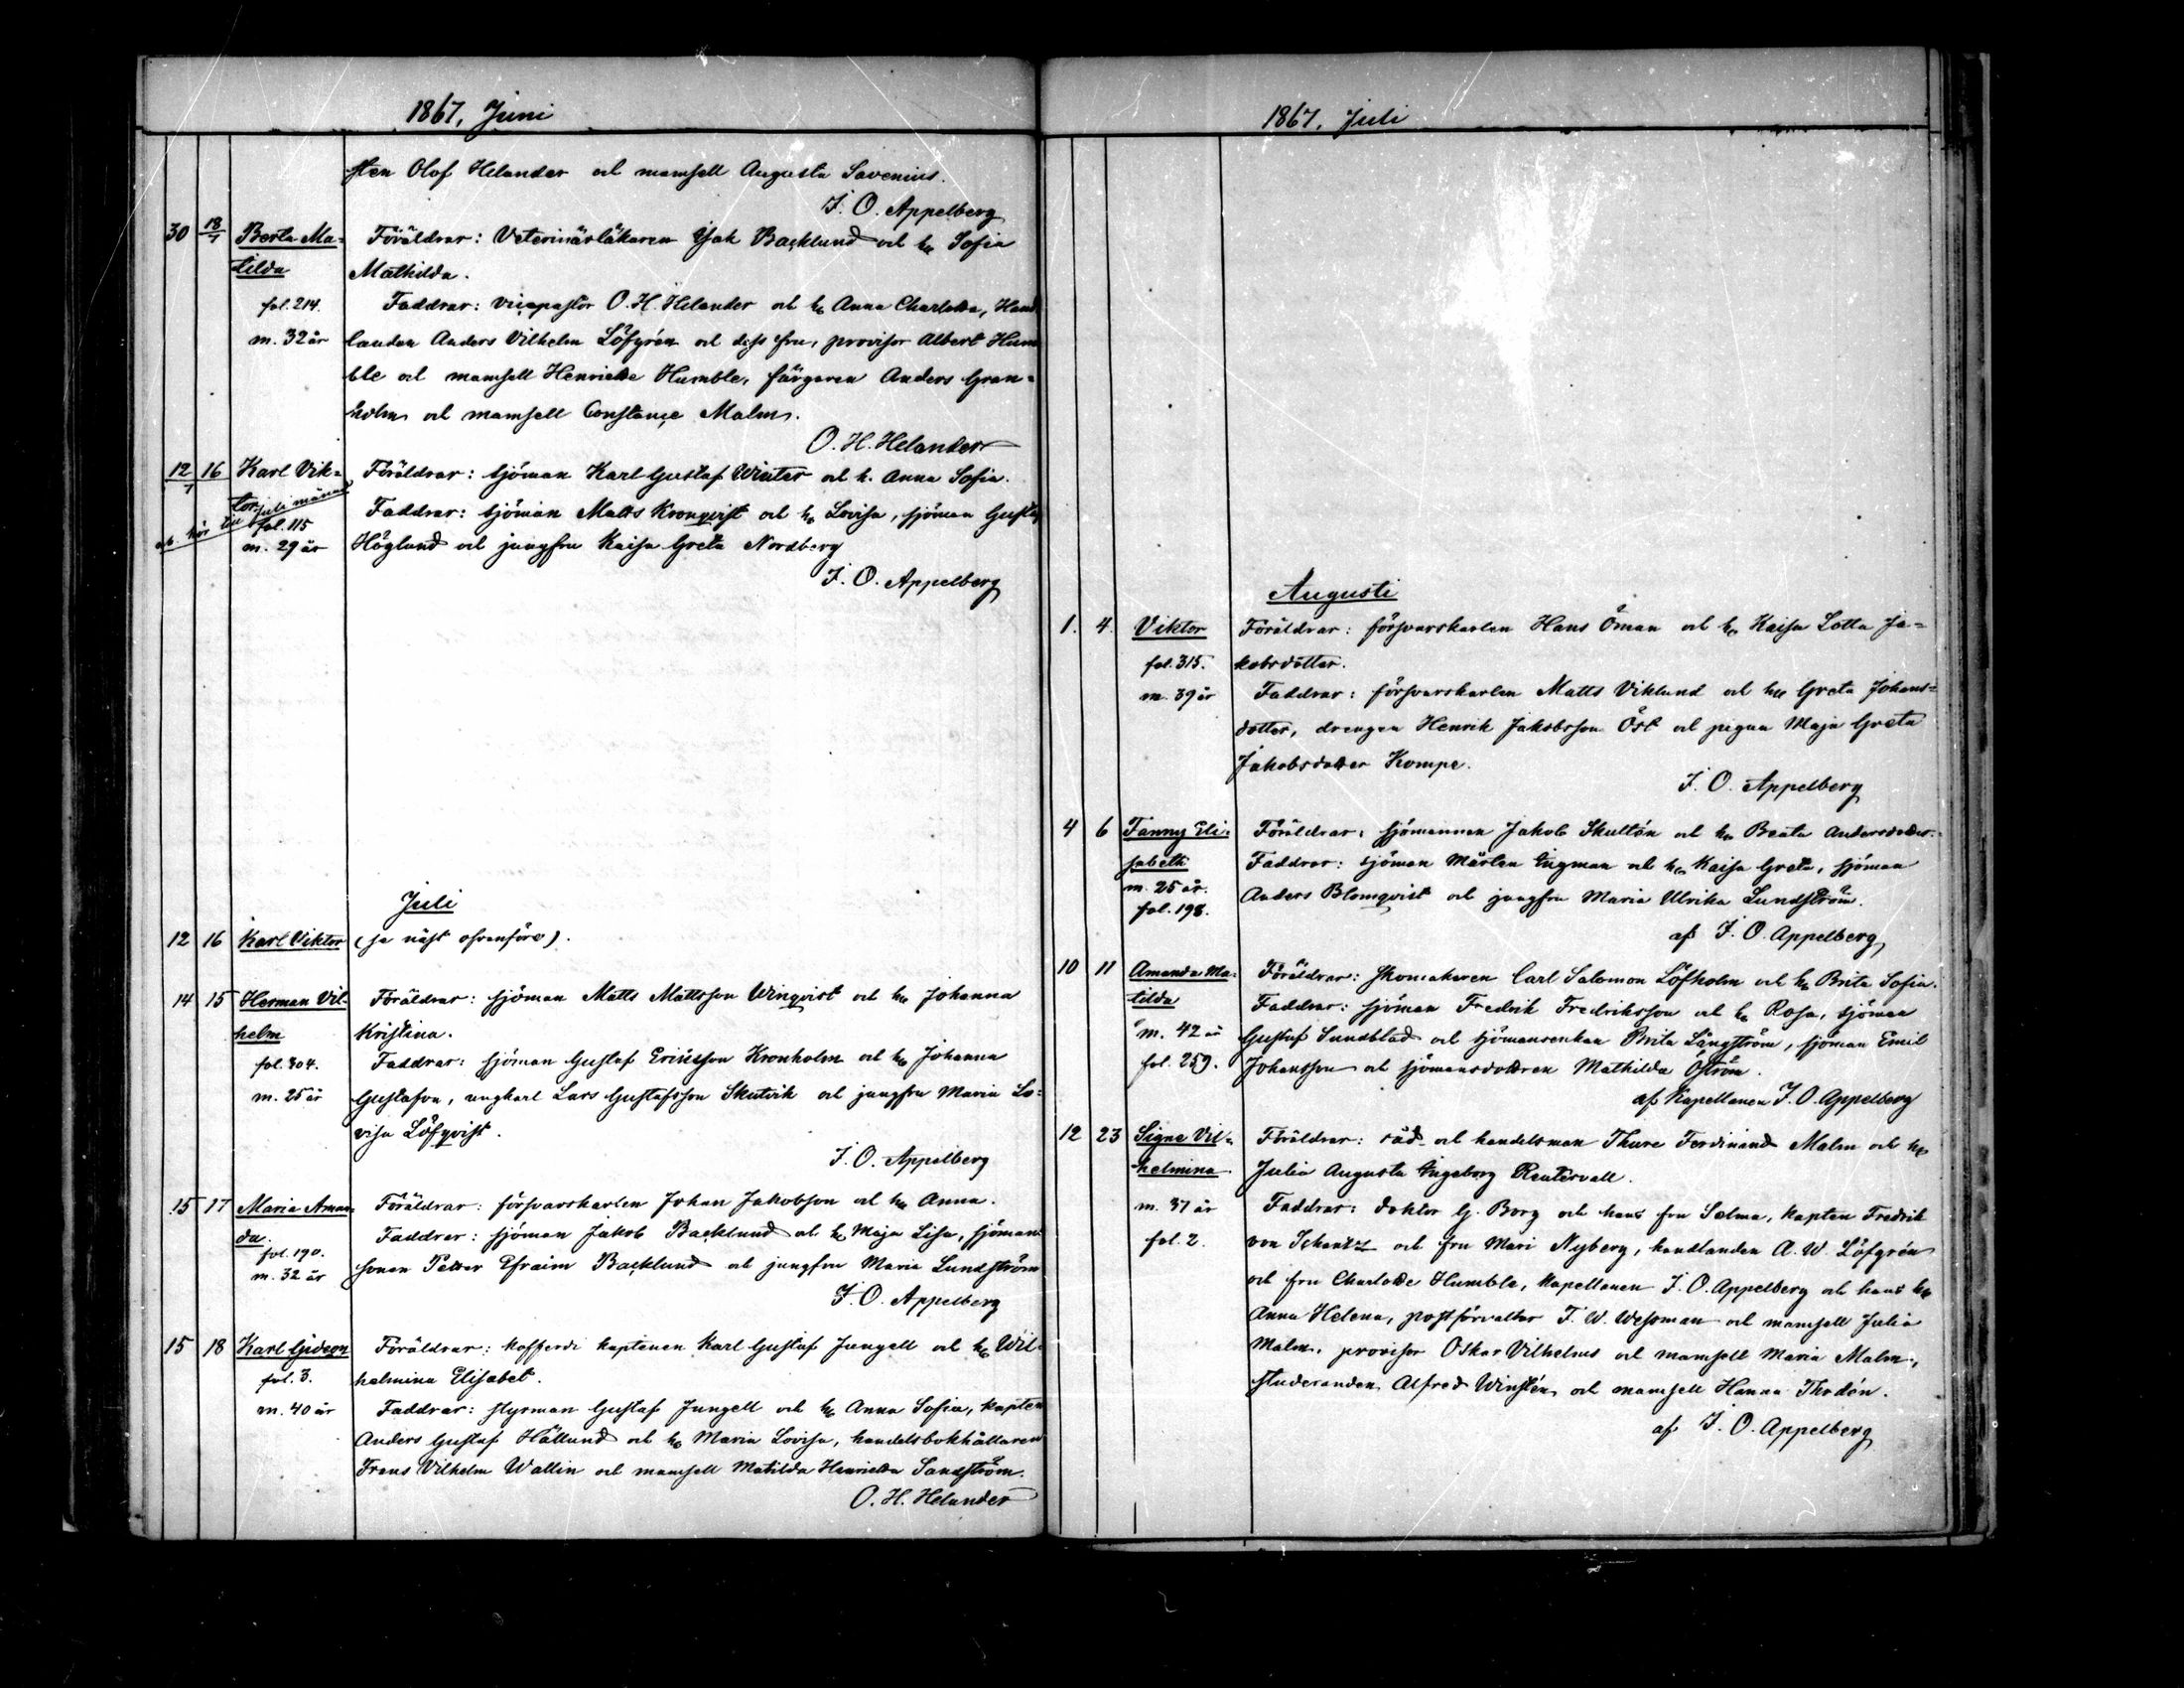 1867, Juni
sten Olof Helander och mamsell Augusta Savenius.
J. O. Appelberg
30 18/7 Berta Ma- Föräldrar: Veterinärläkaren Isak Backlund och h. Sofia
tilda Mathilda.
fol. 214. Faddrar: vicepastor O. H. Helander och h. Anna Charlotta, Hand
m. 32 år landen Anders Vilhelm Löfgrén och dess fru, provisor Albert Hum
ble och mamsell Henriette Humble, färgaren Anders Gran-
holm och mamsell Constance Malm.
O. H. Helander
12/7 16 Karl Vik- Föräldrar: sjöman Karl Gustaf Winter och h. Anna Sofia.
tor. Faddrar: sjöman Matts Kronqvist och h. Lovisa, sjöman Gustaf
hör till juli månad
fol. 115
m. 29 år Höglund och jungfru Kaisa Greta Nordberg
J. O. Appelberg
Juli
12 16 Karl Viktor (se näst ofvanföre).
14 15 Herman Vil- Föräldrar: sjöman Matts Mattsson Winqvist och h. Johanna
helm Kristina.
fol. 304. Faddrar: sjöman Gustaf Ericsson Kronholm och h. Johanna
m. 25 år Gustafva, ungkarl Lars Gustafsson Skutvik och jungfru Maria Lo-
visa Löfqvist.
J. O. Appelberg
15 17 Maria Aman- Föräldrar: försvarskarlen Johan Jakobson och h. Anna.
da. Faddrar: sjöman Jakob Backlund och h. Maja Lisa, sjöman
fol. 190.
m. 32 år sonen Petter Efraim Backlund och jungfru Maria Lundström
J. O. Appelberg
15 18 Karl Gideon Föräldrar: Kofferdi kaptenen Karl Gustaf Jungell och h. Wil-
fol. 3. helmina Elisabet.
m. 40 år Faddrar: styrman Gustaf Jungell och h. Anna Sofia, kapten
Anders Gustaf Hällund och h. Maria Lovisa, handelsbokhållaren
Frans Vilhelm Wallin och mamsell Matilda Henrietta Sandström.
O. H. Helander
1867. Juli
Augusti
1. 4. Viktor Föräldrar: försvarskarlen Hans Öman och h. Kaisa Lotta Ja-
fol. 315. kobsdotter.
m. 39 år Faddrar: försvarskarlen Matts Viklund och h. Greta Johans-
dotter, drengen Henrik Jakobsson Öst och pigan Maja Greta
Jakobsdotter Kompe.
J. O. Appelberg
4 6 Fanny Eli- Föräldrar: sjömannen Jakob Skultén och h. Beata Andersdotter.
sabeth Faddrar: sjöman Mårten Engman och h. Kaisa Greta, sjöman
m. 25 år.
fol. 198. Anders Blomqvist och jungfru Maria Ulrika Lundström.
af J. O. Appelberg
10 11 Amanda Ma- Föräldrar: skomakaren Carl Salomon Löfholm och h. Brita Sofia.
tilda Faddrar: sjöman Fredrik Fredriksson och h. Rosa, sjöman
m. 42 år Gustaf Sundblad och sjömansenkan Brita Långström, sjöman Emil
fol. 259. Johansson och sjömansdottren Mathilda Öström.
af Kapellanen J. O. Appelberg
12 23 Signe Vil- Föräldrar: råd- och handelsman Thure Ferdinand Malm och h.
helmina Julia Augusta Ingeborg Reutervall.
m. 37 år Faddrar: doktor G. Borg och hans fru Selma, kapten Fredrik
fol. 2. von Schantz och fru Mari Nyberg, handlanden A. W. Löfgrén
och fru Charlotte Humble, Kapellanen J. O. Appelberg och hans h.
Anna Helena, postförvalter F. W. Wessman och mamsell Julia
Malm, provisor Oskar Vilhelms och mamsell Maria Malm,
studeranden Alfred Winstén och mamsell Hanna Thodén.
af J. O. Appelberg